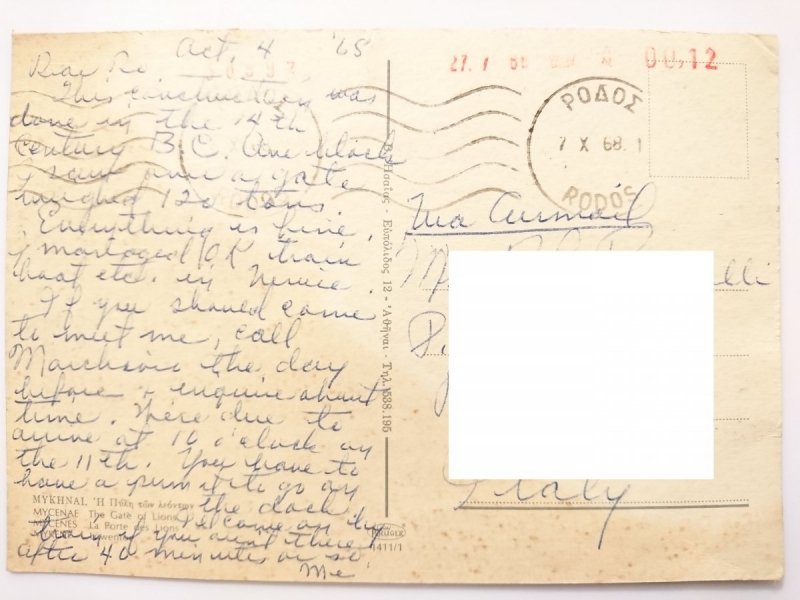 Oct. 4 '65
Dear Ro,
This construction was
done in the 14th
century B.C. One block
I saw over a gate
weighed 120 tons.
Everything is fine.
I managed OK train
boat etc. in Venice.
If you should come
to meet me, call
the day
before & enquire about
time. We're due to
arrive at 10 o'clock on
the 11th. You have to
have a permit to go on
the dock.
I'll come on by
if you aren't there
after 40 minutes or so.
Me
ΜΥΚΗΝΑΙ. Ἡ Πύλη τῶν λεόντων
MYCENAE The Gate of Lions
MYCENES La Porte des Lions
Εὐπόλιδος 12 - Ἀθῆναι - Τηλ. 538.195
1411/1
27. 7 00,12
ΡΟΔΟΣ
7 X 68. 1
RODOS
Via Airmail
lli
Italy